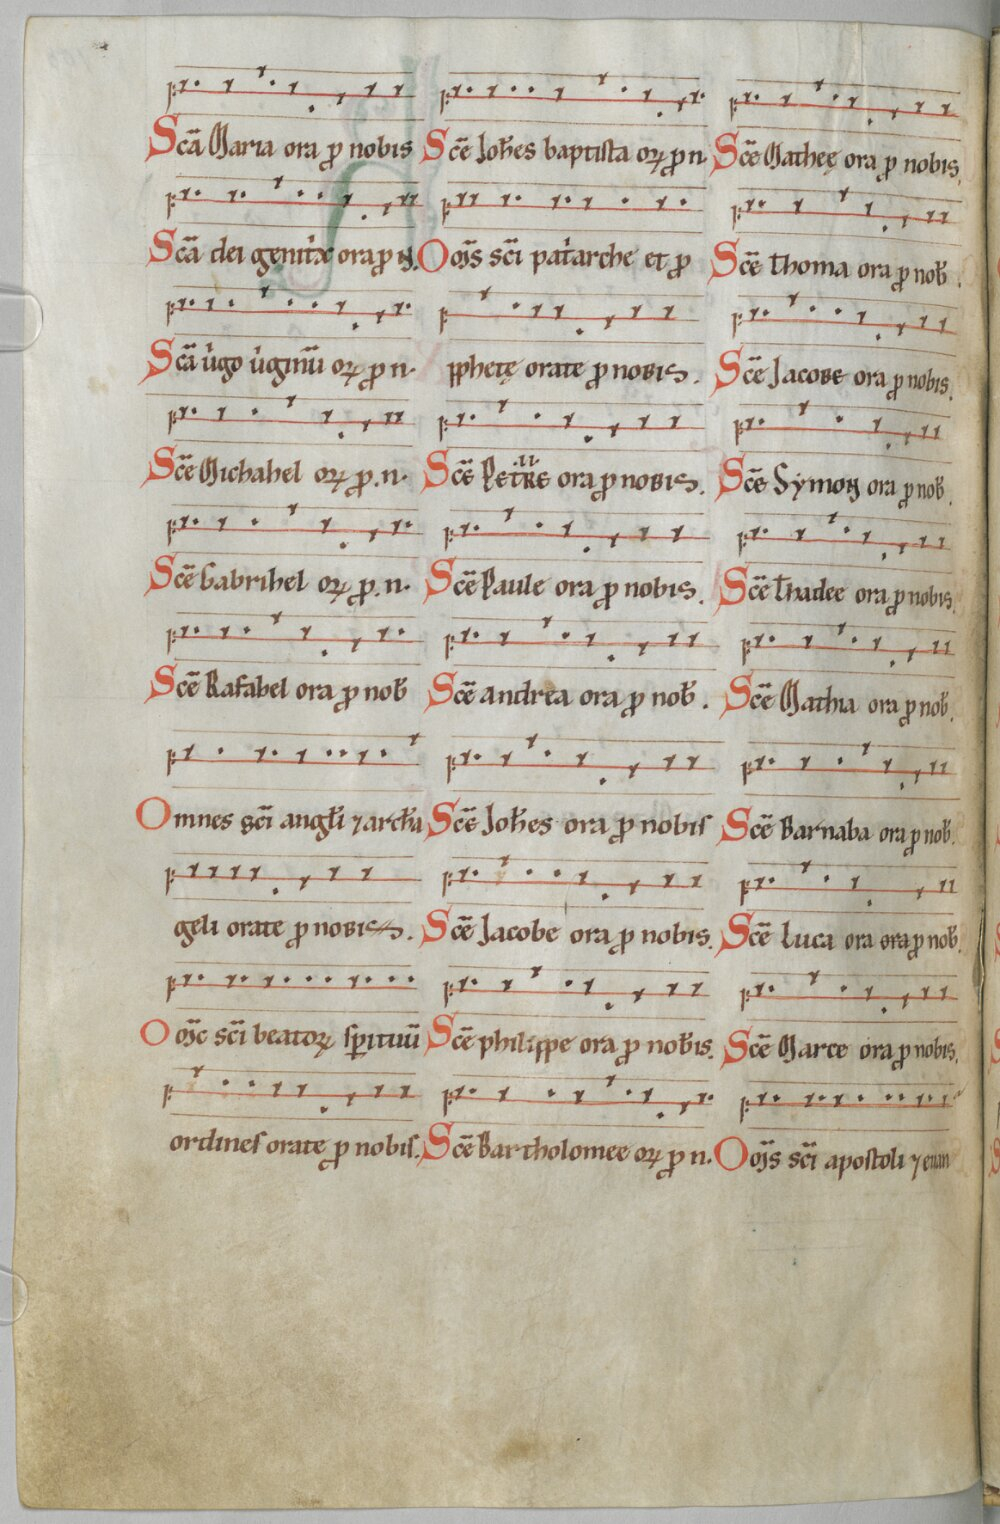 Scā Maria ora ꝓ nobis
Scā dei genitͥx ora ꝓ N.
Scā uͥgo uͥginū orꝝ ꝓ n.
Scē Michahel orꝝ ꝓ .n.
Scē Gabrihel orꝝ ꝓ .n.
Scē Rafahel ora ꝓ nob̄
Omnes sc̄i angl̄i ⁊ arch̄a
geli orate ꝓ nobis.
Om̄s sc̄i beatoꝝ sp̄irituū
ordines orate ꝓ nobis.
Scē Joh̄es baptista orꝝ ꝓ n.
Om̄s sc̄i patͥarche et ꝓ
phetę orate ꝓ nobis.
Scē Petre ora ꝓ nobis.
Scē Paule ora ꝓ nobis.
Scē andrea ora ꝓ nob̄.
Scē Joh̄es ora ꝓ nobis
Scē Jacobe ora ꝓ nobis.
Scē philippe ora ꝓ nobis.
Scē Bartholomee orꝝ ꝓ n.
Scē Matheę ora ꝓ nobis.
Scē thoma ora ꝓ nob̄.
Scē Jacobe ora ꝓ nobis.
Scē Symon ora ꝓ nob̄.
Scē thadee ora ꝓ nobis.
Scē Mathia ora ꝓ nob̄.
Scē Barnaba ora ꝓ nob̄.
Scē Luca ora ora ꝓ nob̄.
Scē Marce ora ꝓ nobis.
Om̄s sc̄i apostoli ⁊ euan